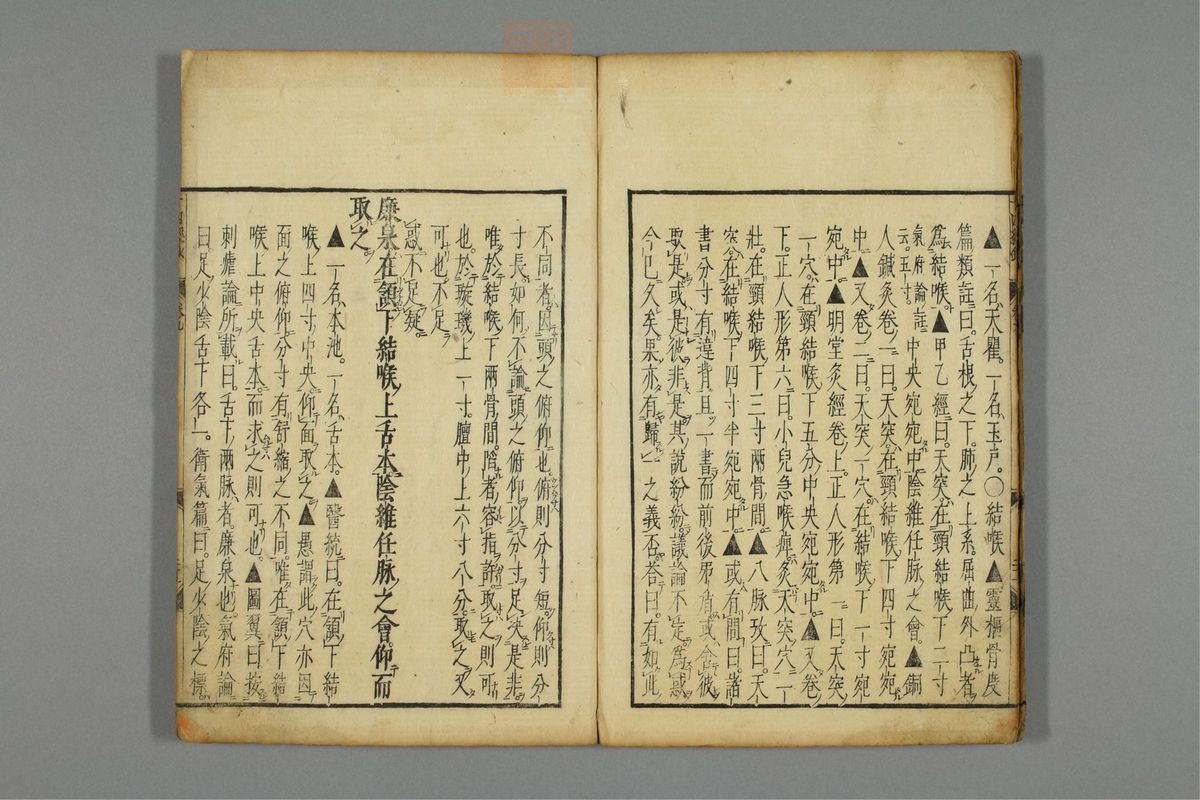 ▲一名、天瞿。一名、玉戸。○結喉▲靈樞骨度
篇類註曰。舌根之下。肺之上系。屈曲外凸者。
為結喉。▲甲乙經曰。天突。在頸結喉下二寸
氣府論註云。五寸。中央宛宛中。陰維任脉之會。▲銅
人鍼灸卷二曰。天突在頸結喉下四寸宛宛
中▲又卷二曰。天突一穴。在結喉下一寸宛
宛中▲明堂灸經卷上。正人形第一曰。天突
一穴。在頸結喉下五分中央宛宛中。▲又卷
下。正人形第六曰。小兒急喉痺。灸天突穴一
壯。在頸結喉下三寸兩骨間▲八脉攷曰。天
突在結喉下四寸半宛宛中▲或有問曰。諸
書分寸有違背。且一書而前後矛盾。或舍彼
取是。或是彼非是。其說紛紛。議論不定。為惑
今已久矣。果亦有歸一之義否。荅曰。有如此
不同者。因頭之俯仰也。俯則分寸短。仰則分
寸長。如何不論頭之俯仰。以分寸足決是非。
唯於結喉下兩骨間。陷者容指許。取之則可
也。於璇璣上一寸。膻中上六寸八分。取之又
可也。不足
惑不足疑
廉泉在頷下結喉上舌本陰維任脉之會仰而
取之
▲一名、本池。一名、舌本。▲醫統曰。在頷下結
喉上四寸中央。仰面取之。▲愚謂此穴亦因
面之俯仰。分寸有舒縮之不同。唯在頷下結
喉上中央舌本。而求之則可也。▲圖翼曰。按
刺瘧論所載曰。舌下兩脉者。廉泉也。氣府論
曰。足少陰舌下各一。衛氣篇曰。足少陰之標